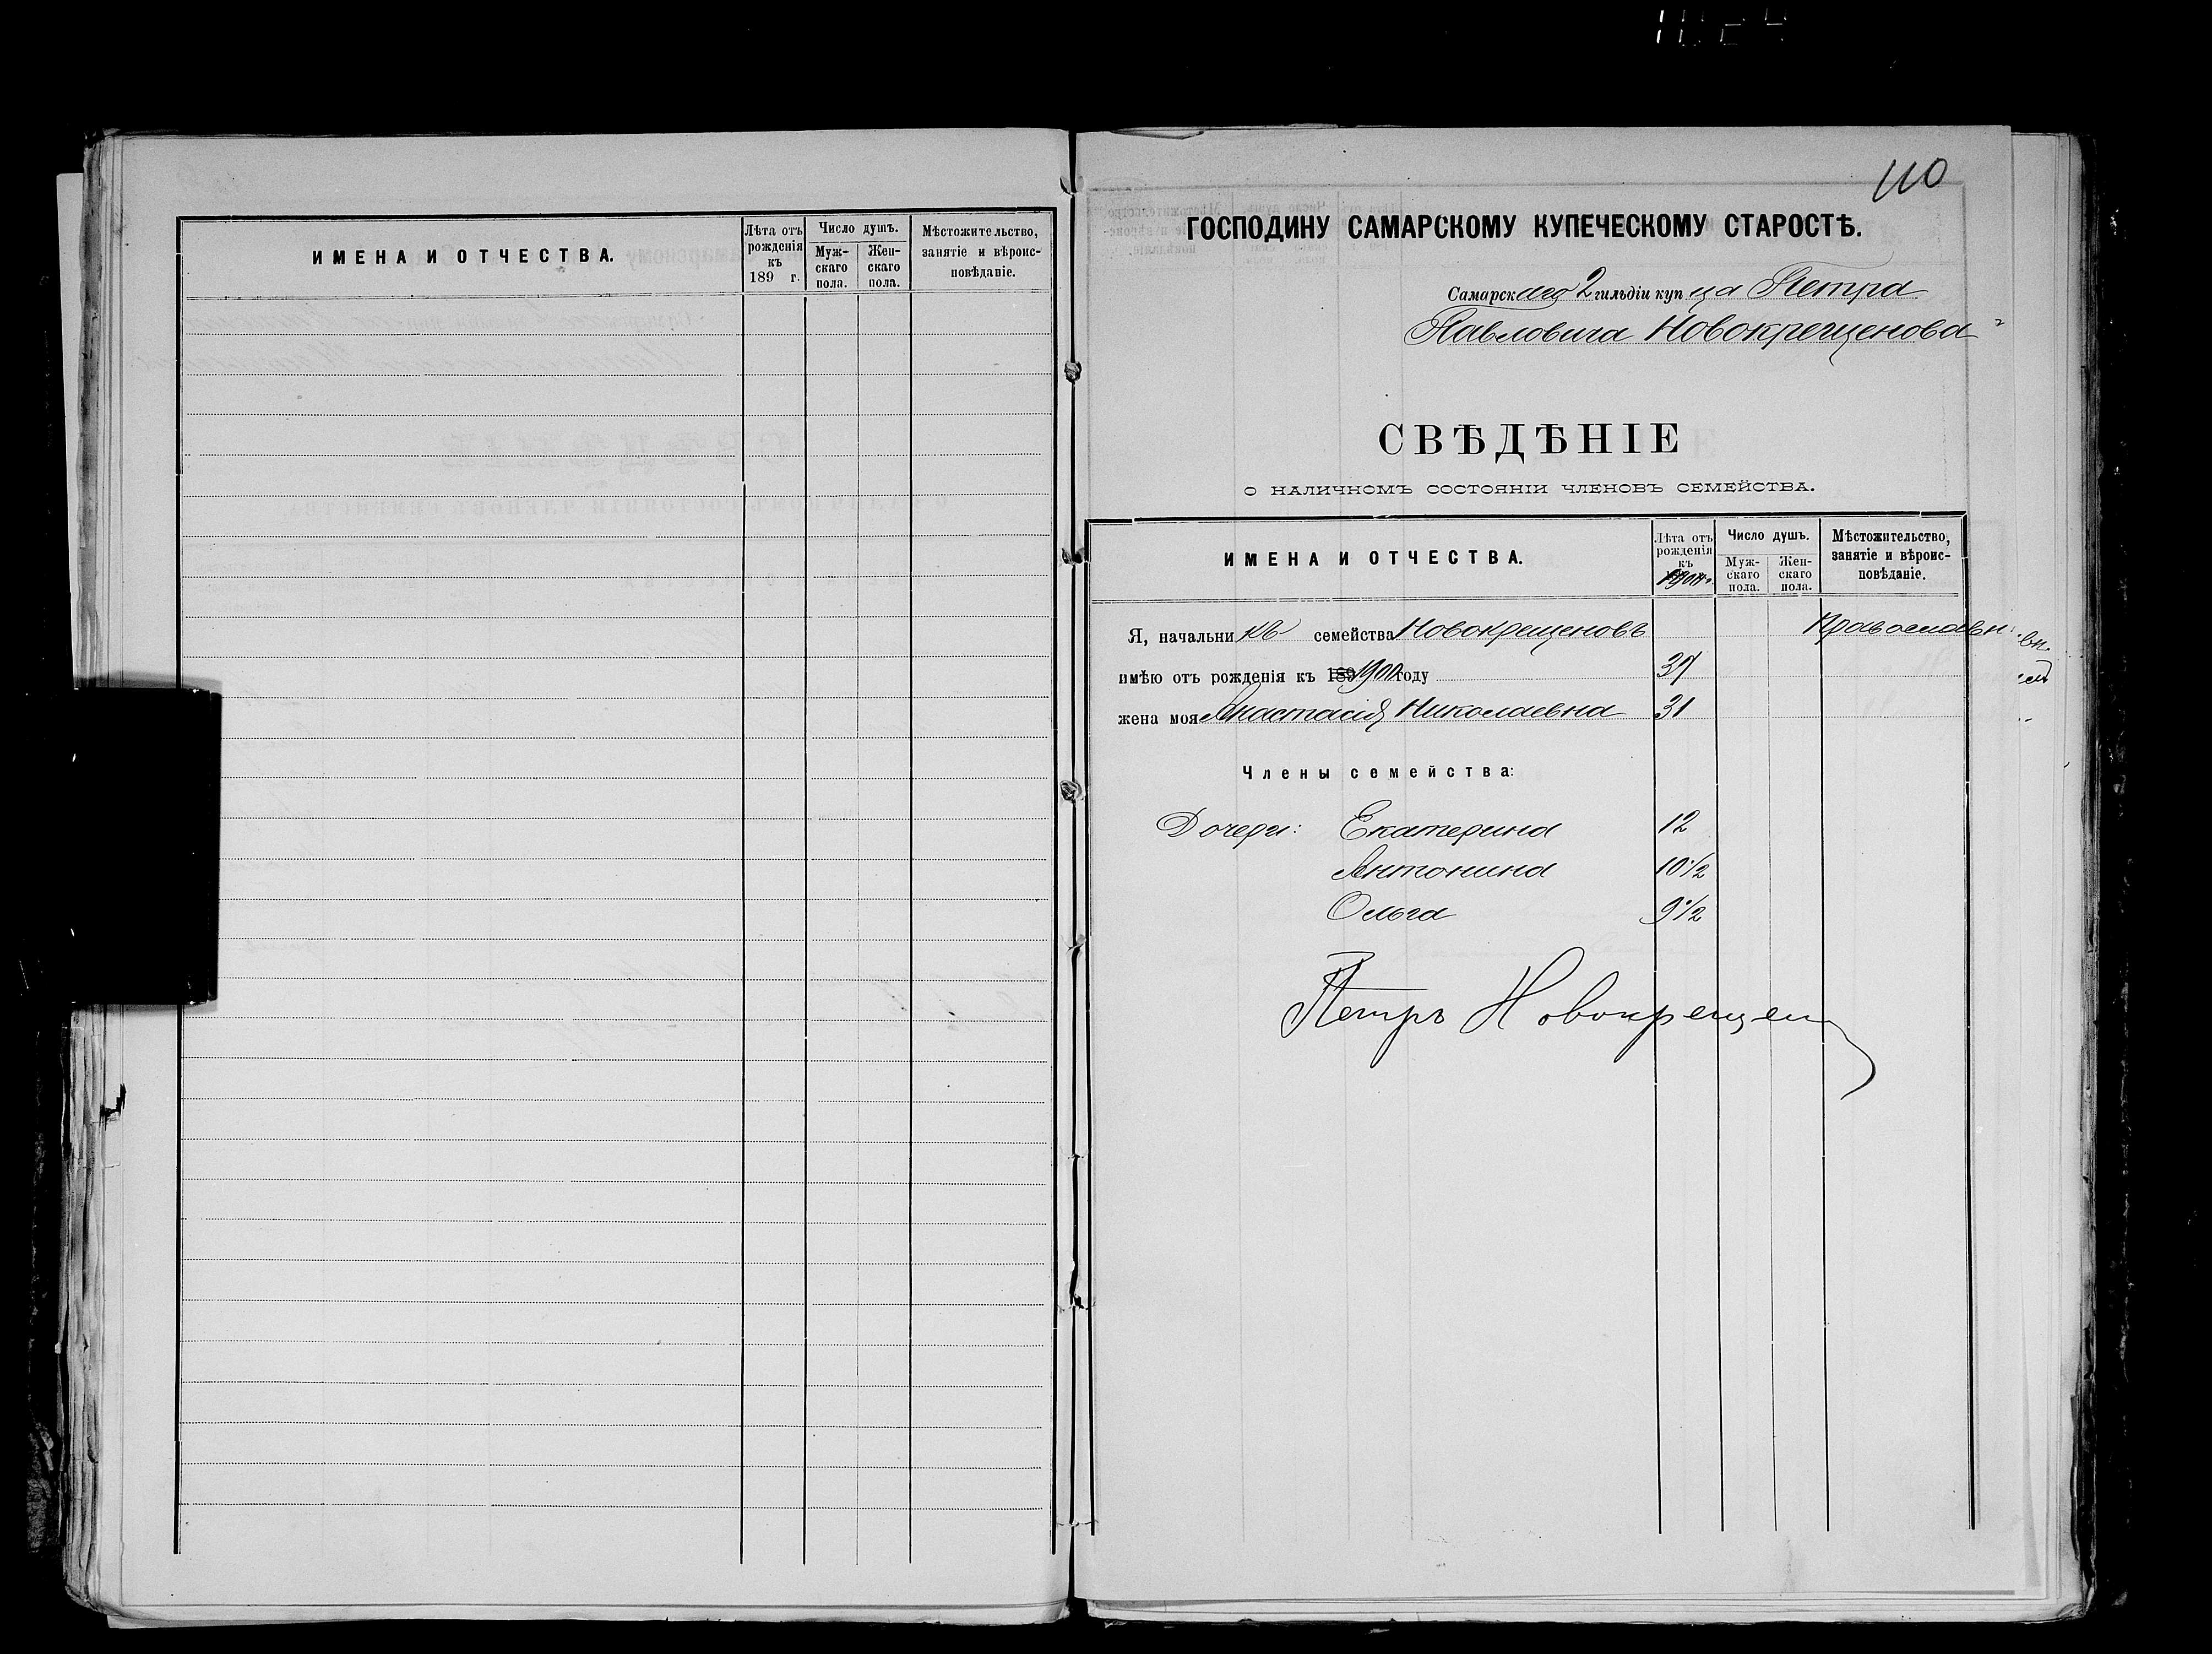 ИМЕНА И ОТЧЕСТВА.
Лѣта отъ рожденія къ 189 г.
Число душъ.
Мужскаго пола.
Женскаго пола.
Мѣстожительство, занятіе и вѣроисповѣданіе.
110
ГОСПОДИНУ САМАРСКОМУ КУПЕЧЕСКОМУ СТАРОСТѢ.
Самарскаго 2 гильдіи купца Петра
Павловича Новокрещенова
СВѢДѢНІЕ
О НАЛИЧНОМЪ СОСТОЯНІИ ЧЛЕНОВЪ СЕМЕЙСТВА.
ИМЕНА И ОТЧЕСТВА.
Лѣта отъ рожденія къ
Число душъ.
Мужскаго пола.
Женскаго пола.
Мѣстожительство, занятіе и вѣроисповѣданіе.
Я, начальникъ семейства Новокрещеновъ Православн.
имѣю отъ рожденія къ году
жена моя Анастасія Николаевна 31
Члены семейства:
Дочери: Екатерина 12
Антонина 10 1/2
Ольга 9 1/2
Петръ Новокрещен